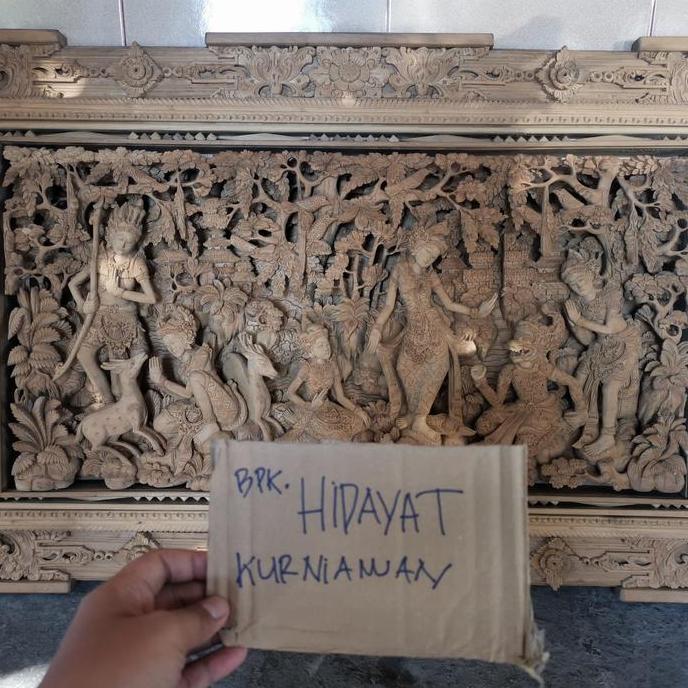 BPK. HIDAYAT
KURNIAWAN